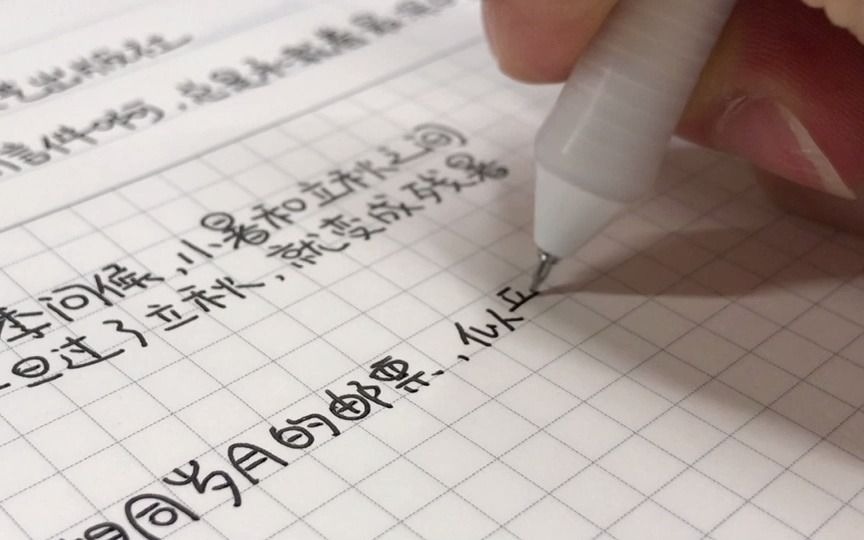 出版社
信件啊，总是
季问候，小暑和立秋之间
一旦过了立秋，就变成残暑
相同岁月的邮票，似